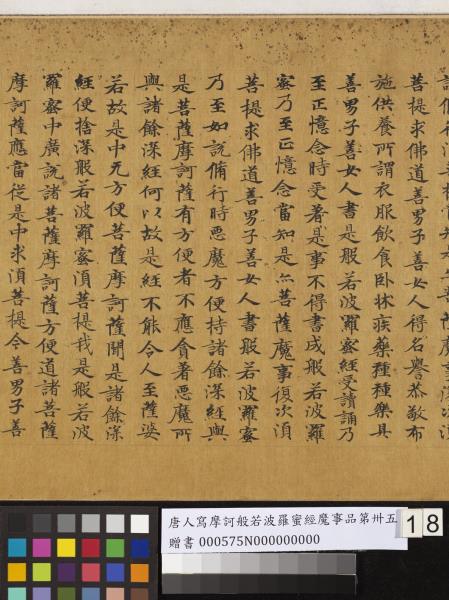 菩提求佛道善男子善女人得名譽恭敬布
施供養所謂衣服飲食卧牀疾藥種種樂具
善男子善女人書是般若波羅蜜經受讀誦乃
至正憶念時受著是事不得書成般若波羅
蜜乃至正憶念當知是亦菩薩魔事復次須
菩提求佛道善男子善女人書般若波羅蜜
乃至如說脩行時悪魔方便持諸餘深經與
是菩薩摩訶薩有方便者不應貪著悪魔所
與諸餘深經何以故是經不能令人至薩婆
若故是中无方便菩薩摩訶薩聞是諸餘深
經便捨深般若波羅蜜須菩提我是般若波
羅蜜中廣說諸菩薩摩訶薩方便道諸菩薩
摩訶薩應當從是中求須菩提今善男子善
唐人寫摩訶般若波羅蜜經魔事品第卅五
贈書 000575N000000000
18